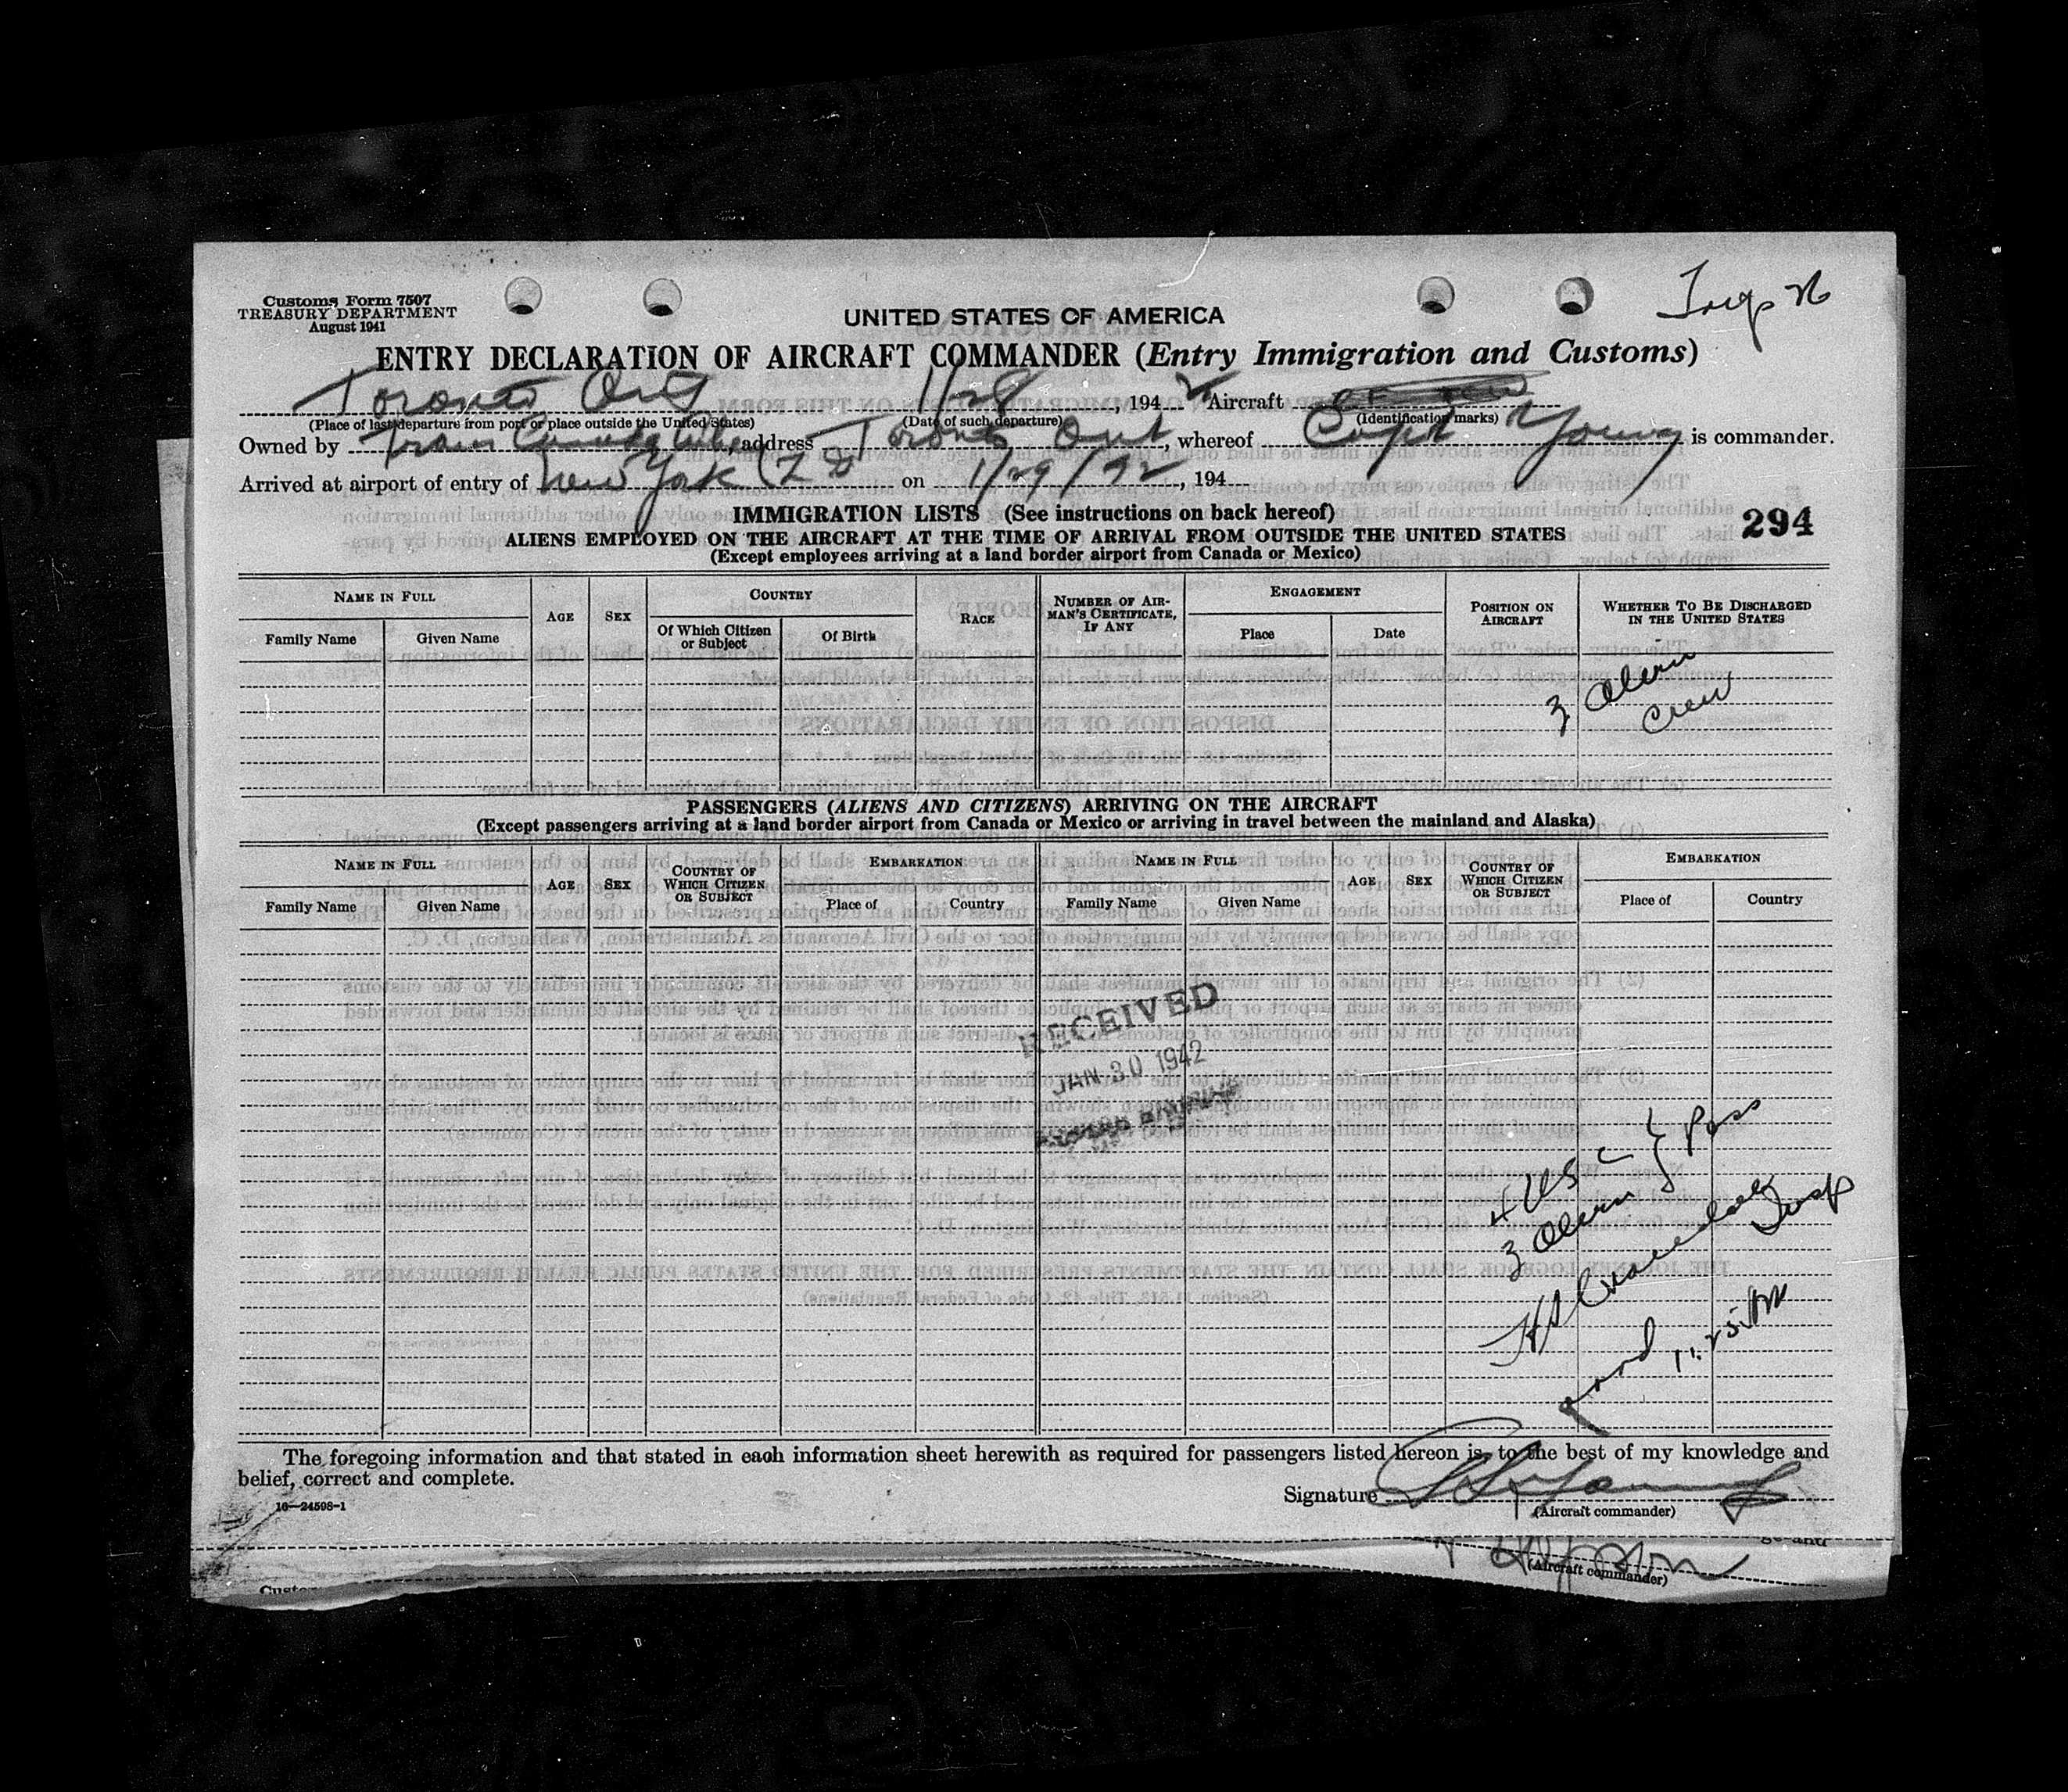 Customs Form 7507
TREASURY DEPARTMENT
August 1941
UNITED STATES OF AMERICA
ENTRY DECLARATION OF AIRCRAFT COMMANDER (Entry Immigration and Customs)
Toronto Ont 1/28, 194 2 Aircraft
(Place of last departure from port or place outside the United States) (Date of such departure) (Identification marks)
Owned by Trans Canada address Toronto Ont, whereof Capt Young is commander.
Arrived at airport of entry of New York on 1/29/42, 194
294
IMMIGRATION LISTS (See instructions on back hereof)
ALIENS EMPLOYED ON THE AIRCRAFT AT THE TIME OF ARRIVAL FROM OUTSIDE THE UNITED STATES
(Except employees arriving at a land border airport from Canada or Mexico)
NAME IN FULL
Family Name Given Name
AGE
SEX
COUNTRY
Of Which Citizen or Subject
Of Birth
RACE
NUMBER OF AIRMAN'S CERTIFICATE, IF ANY
ENGAGEMENT
Place Date
POSITION ON AIRCRAFT
WHETHER TO BE DISCHARGED IN THE UNITED STATES
3 Alien
Crew
PASSENGERS (ALIENS AND CITIZENS) ARRIVING ON THE AIRCRAFT
(Except passengers arriving at a land border airport from Canada or Mexico or arriving in travel between the mainland and Alaska)
NAME IN FULL
Family Name Given Name
AGE
SEX
COUNTRY OF WHICH CITIZEN OR SUBJECT
EMBARKATION
Place of Country
NAME IN FULL
Family Name Given Name
AGE
SEX
COUNTRY OF WHICH CITIZEN OR SUBJECT
EMBARKATION
Place of Country
RECEIVED
JAN 30 1942
4 USC } Pass
3 Alien
Insp
11:25 PM
The foregoing information and that stated in each information sheet herewith as required for passengers listed hereon is, to the best of my knowledge and
belief, correct and complete.
Signature
(Aircraft commander)
16—24598-1
(Aircraft commander)